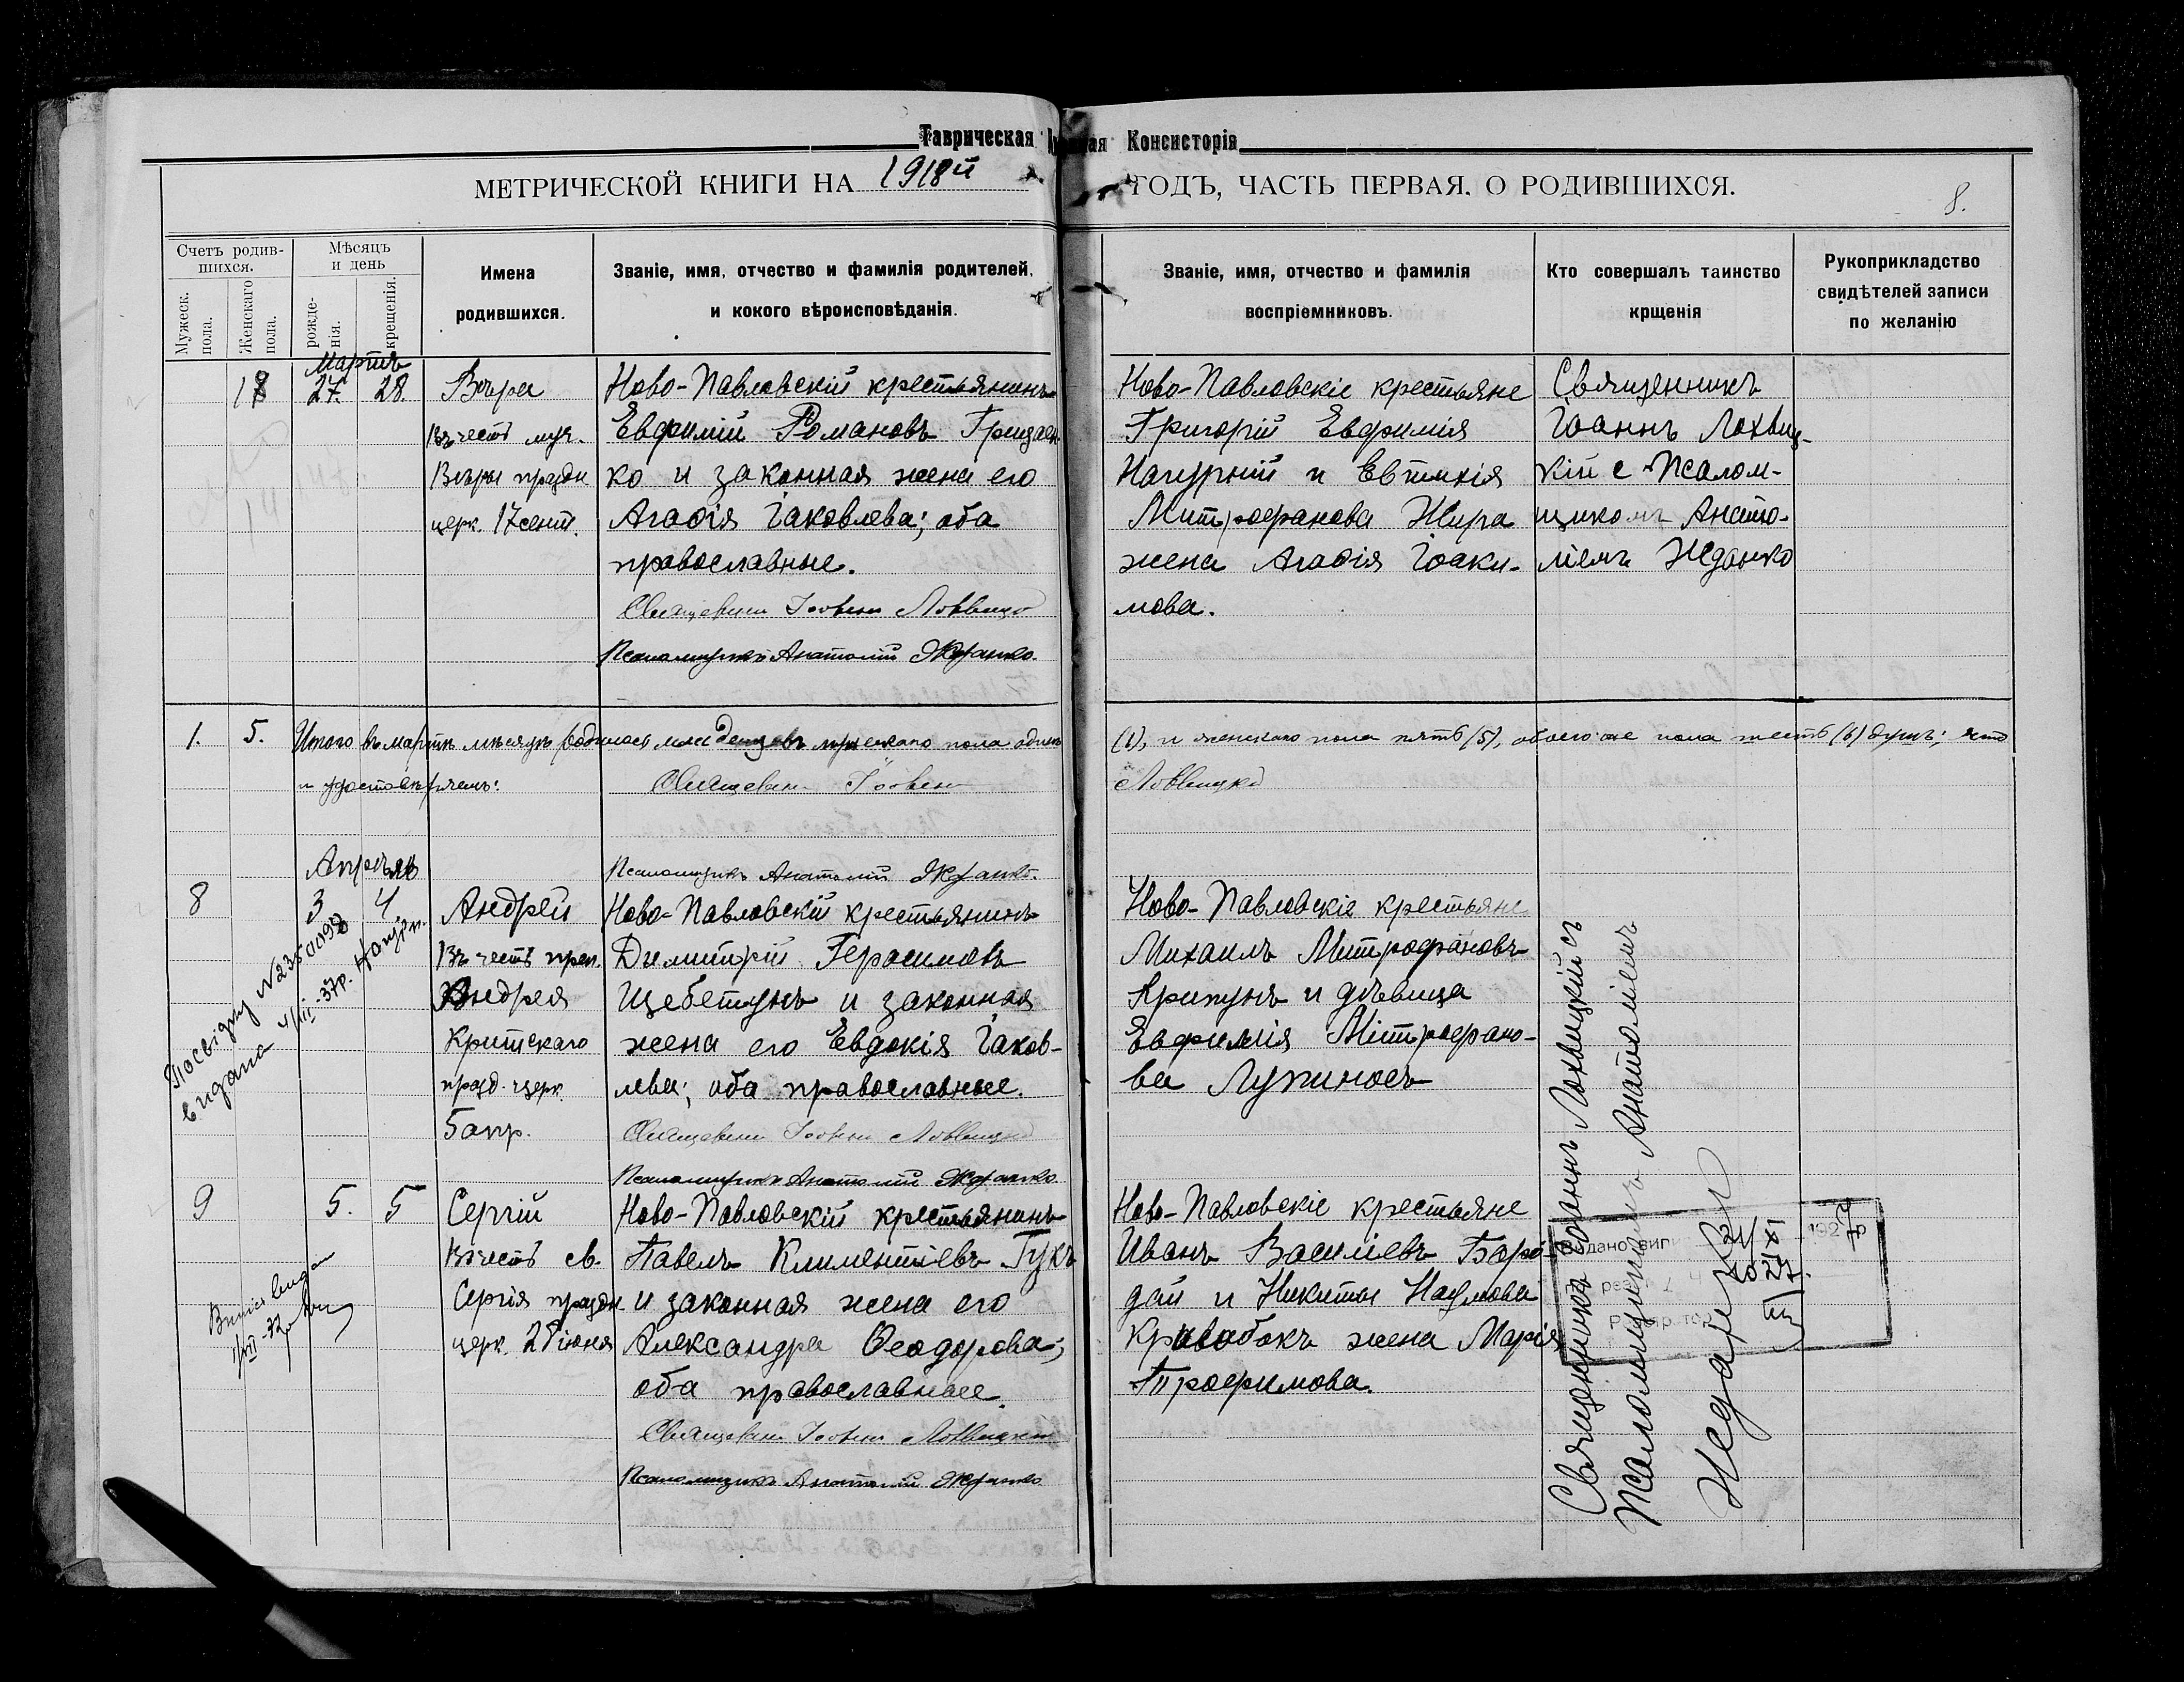 Таврическая Консисторія
МЕТРИЧЕСКОЙ КНИГИ НА 1918й ГОДЪ, ЧАСТЬ ПЕРВАЯ. О РОДИВШИХСЯ.
8.
Счетъ родив-
шихся.
Мужеск.
пола.
Женскаго
пола.
Мѣсяцъ
и день
рожде-
нія.
крещенія.
Имена
родившихся.
Званіе, имя, отчество и фамилія родителей,
и кокого вѣроисповѣданія.
Званіе, имя, отчество и фамилія
воспріемниковъ.
Кто совершалъ таинство
крщенія
Рукоприкладство
свидѣтелей записи
по желанію
Мартъ
18 27. 28.
Вѣра
Въ честь муч.
Вѣры праздн
церк. 17 сент.
Ново-Павловскій крестьянинъ
Евфимій Романовъ Грицаен-
ко и законная жена его
Агаѳія Іаковлева; оба
православные.
Священникъ Іоаннъ Лохвицкій
Псаломщикъ Анатолій Жданко.
Ново-Павловскіе крестьяне
Григорій Евфимія
Нагурній и Евтихія
Митрофанова Жира
жена Агаѳія Іоаки-
мова.
Священникъ
Іоаннъ Лохвиц-
кій с Псалом-
щикомъ Анато-
ліемъ Жданко
1. 5. Итого въ мартѣ мѣсяцѣ родилось младенцевъ мужескаго пола одинъ (1), и женскаго пола пять (5), обоего же пола шесть (6) душъ; что
и удостовѣряемъ: Священникъ Іоаннъ Лохвицкій
Псаломщикъ Анатолій Жданко.
Апрѣль
8 3 4
Андрей
Въ честь преп.
Андрея
Критскаго
празд. церк.
5 апр.
Ново-Павловскій крестьянинъ
Димитрій Герасимовъ
Щебетунъ и законная
жена его Евдокія Іаков-
лева; оба православные.
Священникъ Іоаннъ Лохвицкій
Псаломщикъ Анатолій Жданко
Ново-Павловскіе крестьяне
Михаилъ Митрофановъ
Крипунъ и дѣвица
Евфимія Митрофано-
ва Лупиносъ
видана 4/III-37р.
9 5. 5
Сергій
Въ честь св.
Сергія праздн
церк. 28 іюня
Ново-Павловскій крестьянинъ
Павелъ Климентіевъ Гукъ
и законная жена его
Александра Ѳеодорова;
оба православные.
Священникъ Іоаннъ Лохвицкій
Псаломщикъ Анатолій Жданко
Ново-Павловскіе крестьяне
Иванъ Василіевъ Боро-
дай и Никиты Наумова
Кривобокъ жена Марія
Трофимова.
Священникъ Іоаннъ Лохвицкій съ
Псаломщикомъ Анатоліемъ
Видано
192